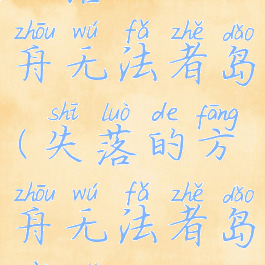 zhōu wú fǎ zhě dǎo
舟无法者岛
shī luò de fāng
(失落的方
zhōu wú fǎ zhě dǎo
舟无法者岛